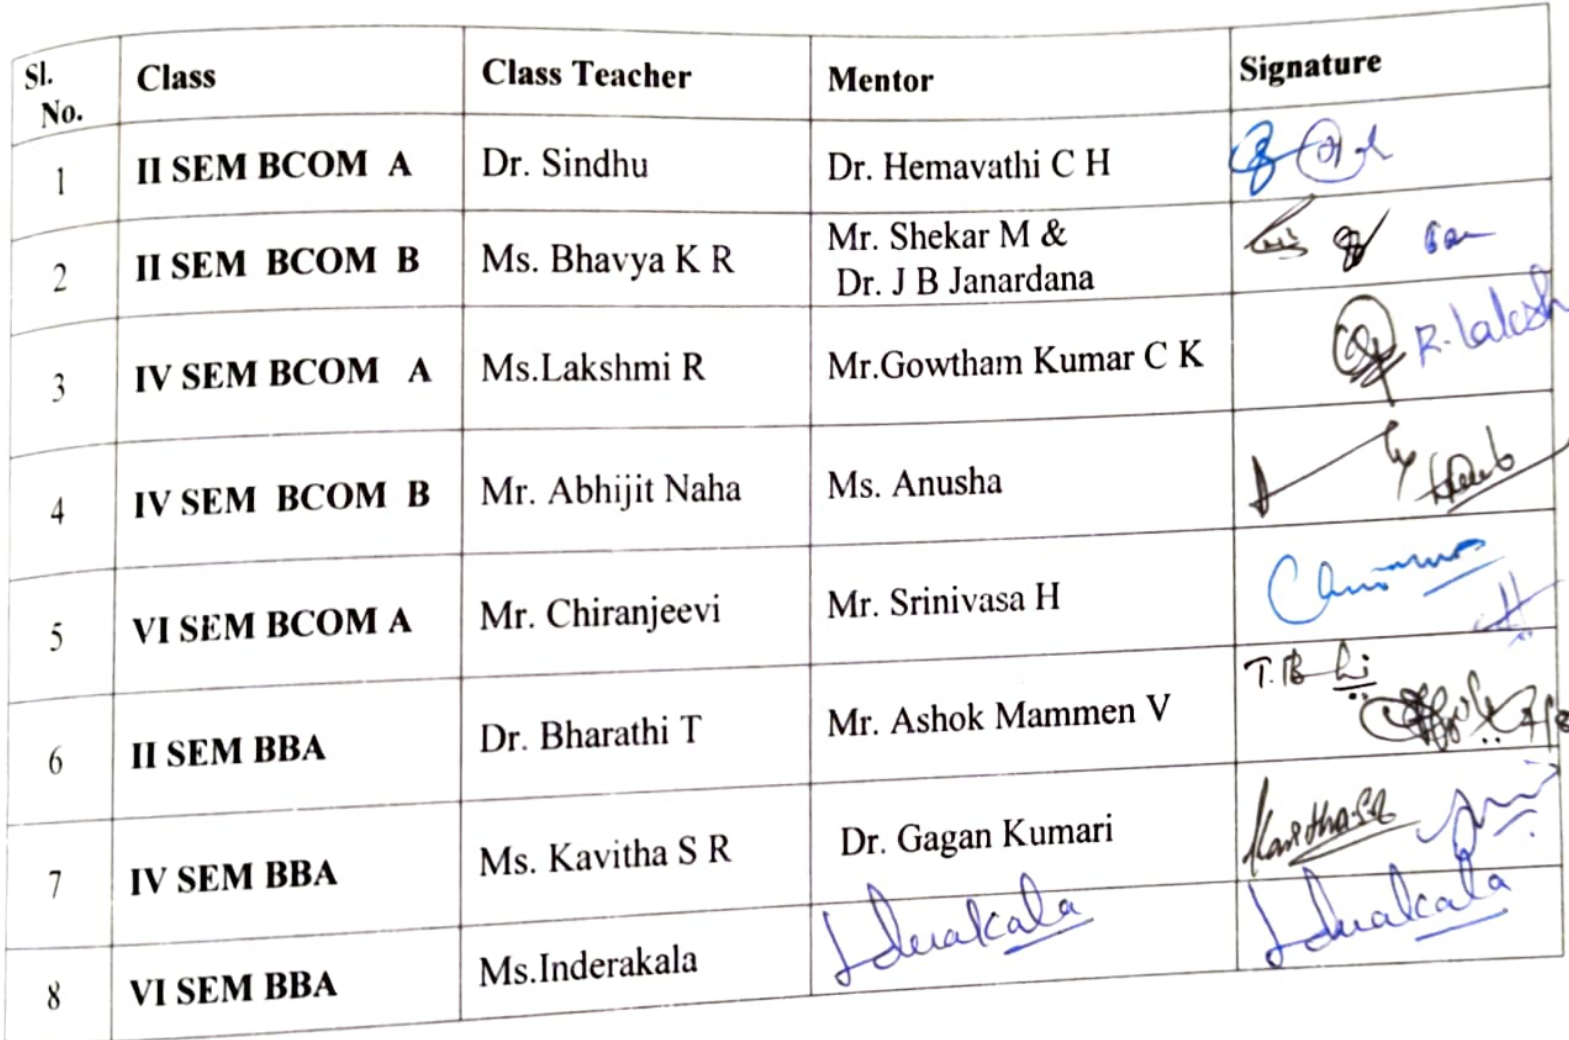 Sl. No. Class Class Teacher Mentor Signature
1 II SEM BCOM A Dr. Sindhu Dr. Hemavathi C H
2 II SEM BCOM B Ms. Bhavya K R Mr. Shekar M &
Dr. J B Janardana
3 IV SEM BCOM A Ms.Lakshmi R Mr.Gowtham Kumar C K
4 IV SEM BCOM B Mr. Abhijit Naha Ms. Anusha
5 VI SEM BCOM A Mr. Chiranjeevi Mr. Srinivasa H
6 II SEM BBA Dr. Bharathi T Mr. Ashok Mammen V
7 IV SEM BBA Ms. Kavitha S R Dr. Gagan Kumari
8 VI SEM BBA Ms.Inderakala